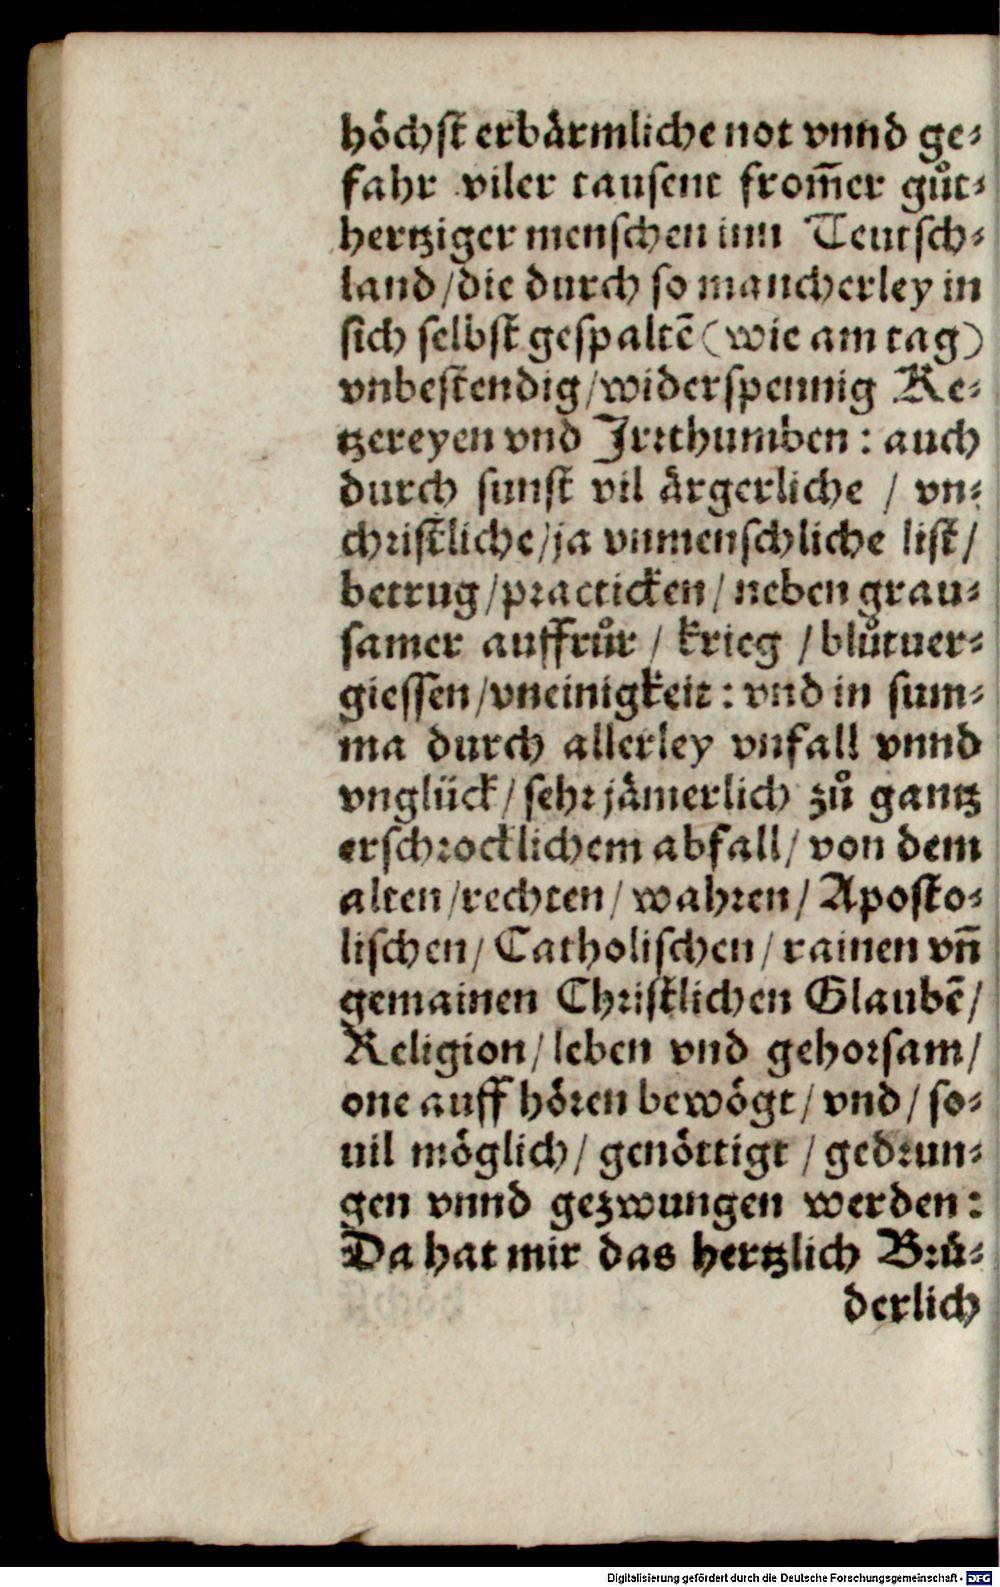 höchst erbärmliche not vnnd ge⸗
fahr viler tausent from̄er gůt⸗
hertziger menschen inn Teutsch⸗
land / die durch so mancherley in
sich selbst gespaltē (wie am tag)
vnbestendig / widerspennig Ke⸗
tzereyen vnd Irrthumben : auch
durch sunst vil ärgerliche / vn⸗
christliche / ja vnmenschliche list /
betrug / practicken / neben grau⸗
samer auffrůr / krieg / blůtuer⸗
giessen / vneinigkeit : vnd in sum⸗
ma durch allerley vnfall vnnd
vnglück / sehr jämerlich zů gantz
erschrocklichem abfall / von dem
alten / rechten / wahren / Aposto⸗
lischen / Catholischen / rainen vn̄
gemainen Christlichen Glaubē /
Religion / leben vnd gehorsam /
one auff hören bewögt / vnd / so⸗
uil möglich / genöttigt / gedrun⸗
gen vnnd gezwungen werden :
Da hat mir das hertzlich Brü⸗
derlich
Digitalisierung gefördert durch die Deutsche Forschungsgemeinschaft - DFG